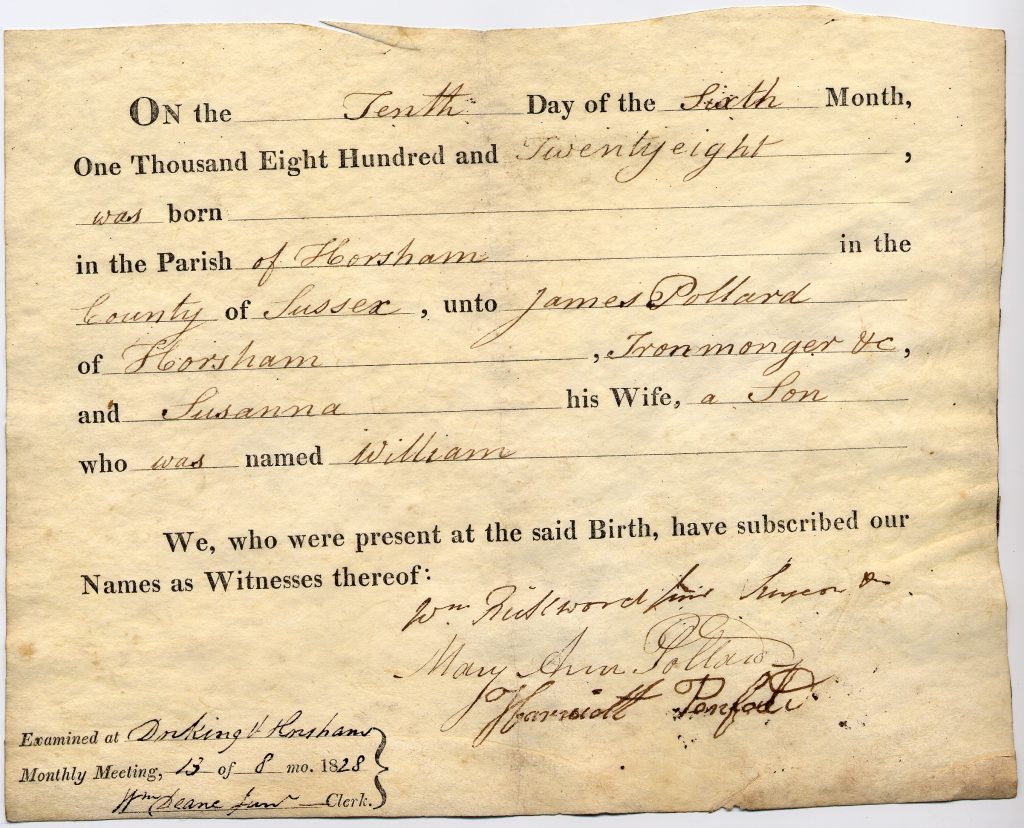 ON the Tenth Day of the Sixth Month,
One Thousand Eight Hundred and Twentyeight,
was born
in the Parish of Horsham in the
County of Sussex, unto James Pollard
of Horsham, Ironmonger &c,
and Susanna his Wife, a Son
who was named William
We, who were present at the said Birth, have subscribed our
Names as Witnesses thereof:
Wm Rickword
Mary Ann Pollard
Harriott Penfold
Examined at Dorking & Horsham
Monthly Meeting, 13 of 8 mo. 1828
Wm Deane Junr Clerk.